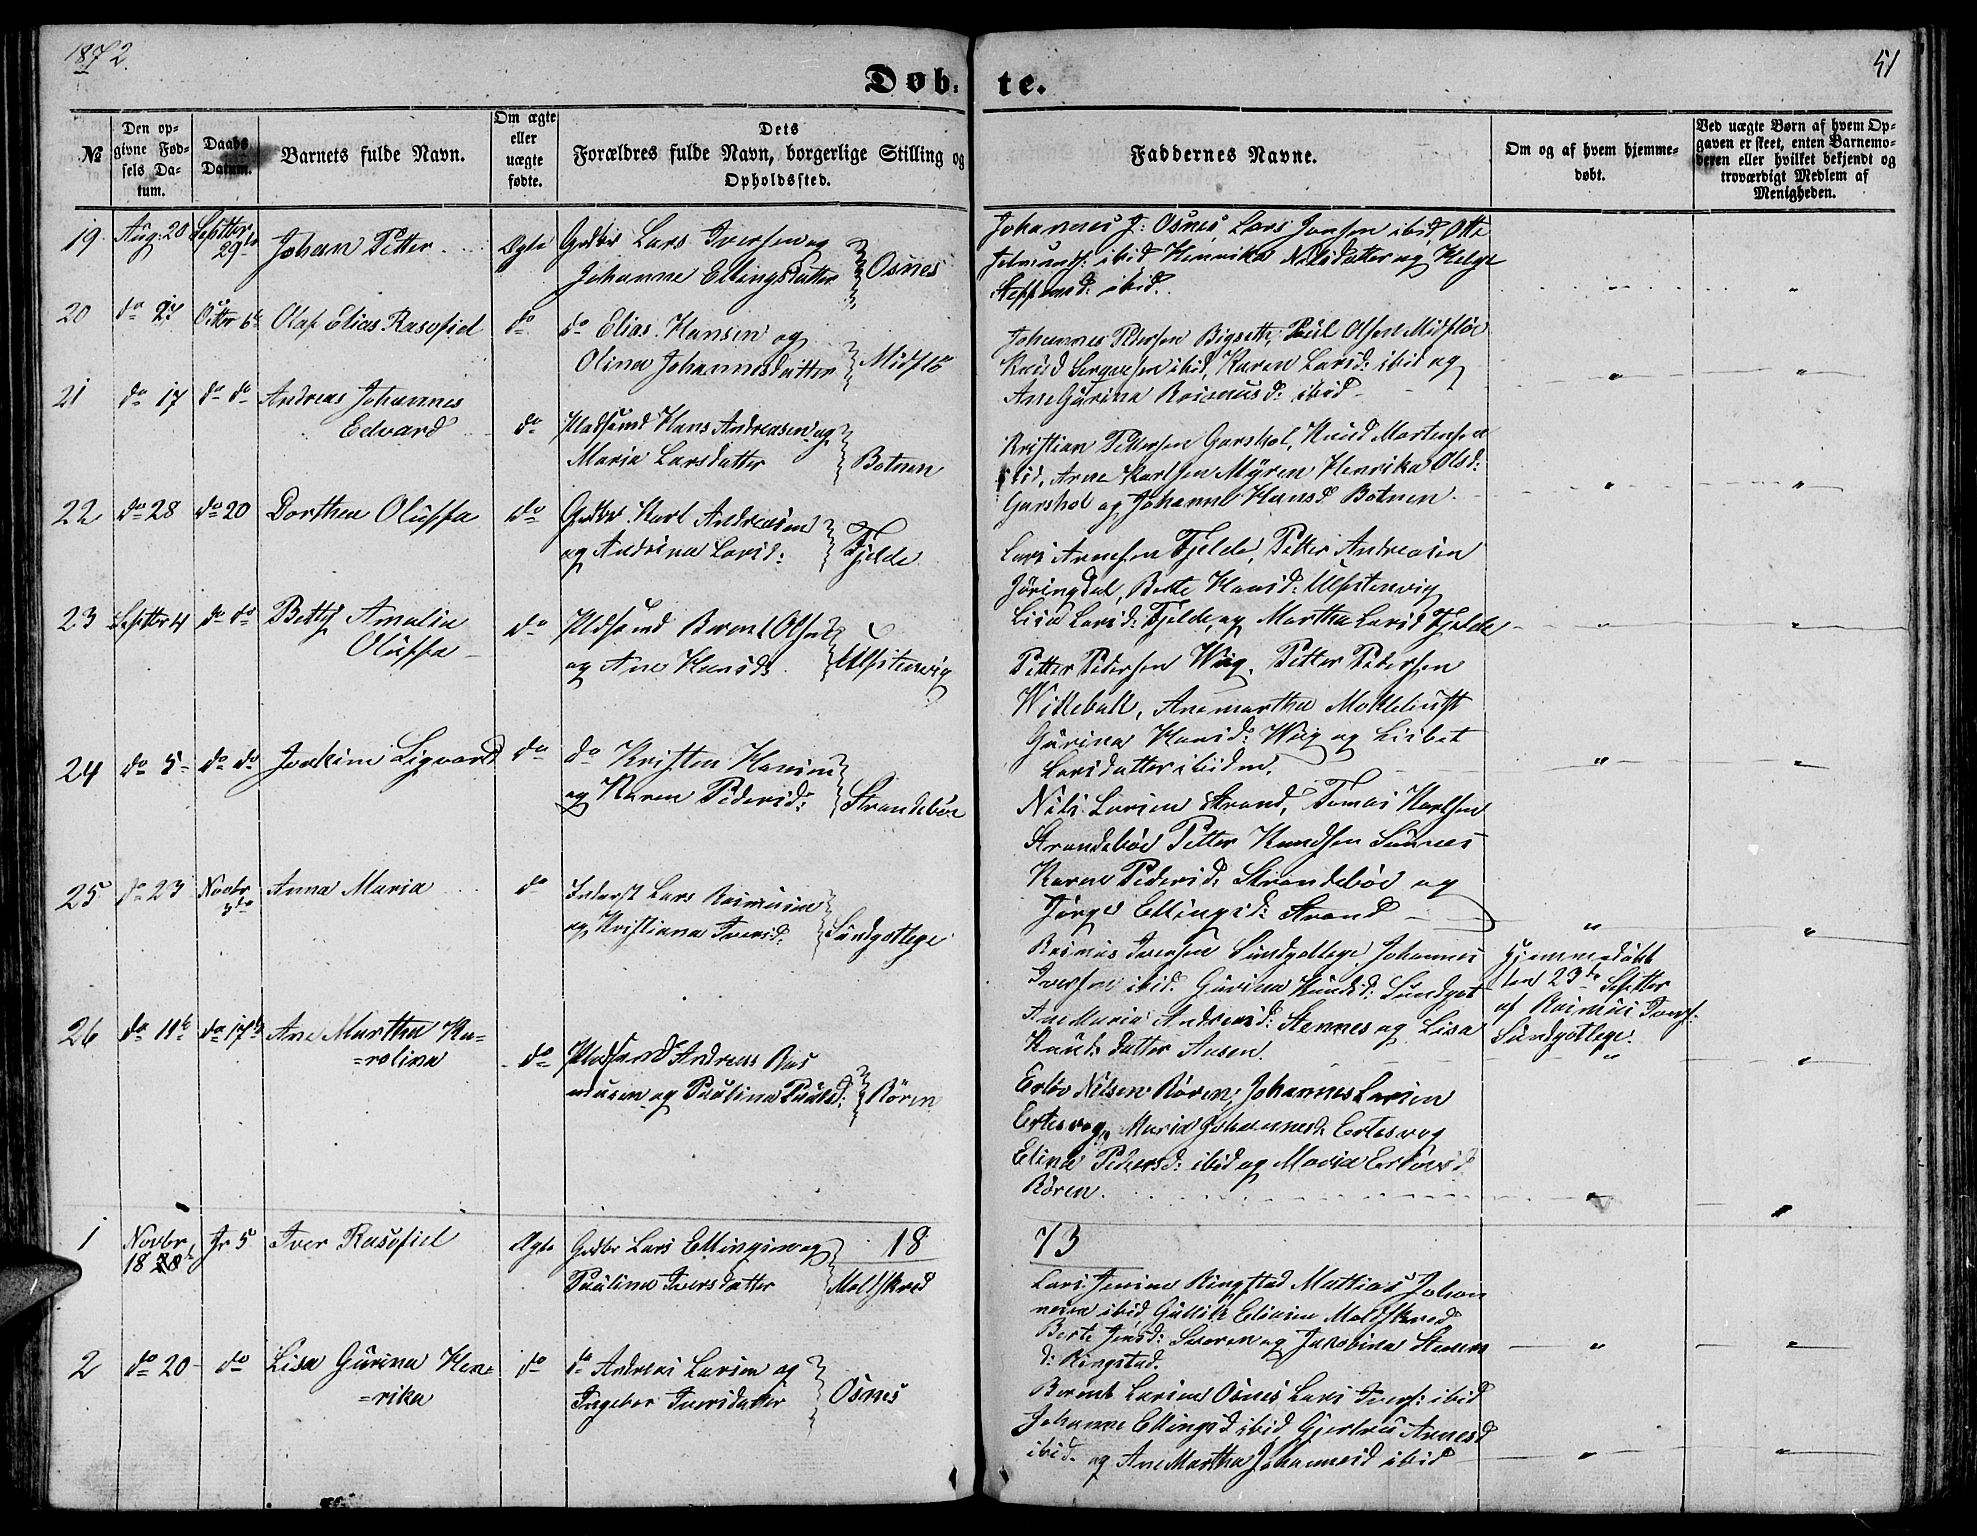 1872.
51
Døb- te.
№
Den opgivne Fødsels Datum.
Daabs Datum.
Barnets fulde Navn.
Om ægte eller uægte fødte.
Dets Forældres fulde Navn, borgerlige Stilling og Opholdssted.
Faddernes Navne.
Om og af hvem hjemmedøbt.
Ved uægte Børn af hvem Opgaven er skeet, enten Barnemoderen eller hvilket bekjendt og troværdigt Medlem af Menigheden.
19 Aug. 20 Septbr 29de Johan Petter Ægte Gdbr Lars Iversen og
Johanne Ellingsdatter Osnes
Johannes J: Osnes, Lars Jonsen ibid, Otte
ibid Henrika Nilsdatter og Helge
Steffensd: ibid.
20 do 27 Octbr 6te Olaf Elias Rasofiel do do Elias Hansen og
Olina Johannesdatter Midflø
Johannes Pedersen Bigsette, Paul Olsen Midfløe
Knud ibid, Karen Larsd: ibid og
Ane Gurina Rasmusd: ibid
21 do 17 do do Andreas Johannes
Edvard do Pladsmd Hans Andreasen og
Maria Larsdatter Botnen
Kristian Pettersen Garshol, Knud Martensen
ibid, Arne Karlsen Myren Henrika Olsd:
Garshol og Johanne Hansd Botnen
22 do 28 do 20 Dorthea Oluffa do Gdbr Karl Andreasen
og Andrina Larsd: Fjelde
Lars Arnesen Fjelde, Petter Andreasen
Jøringdal, Berte Hansd: Ulfstenvig
Lisa Larsd: Fjelde, og Martha Larsd Fjelde
23 Septbr 4 do do Bettÿ Amalia
Oluffa do Pladsmd Bernt Olsen
og Ane Hansd: Ulfstenvig
Petter Pedersen Wiig, Petter Pedersen
Wikebakk, Anemartha Moklebust
Gurina Hansd: Wiig og Lisbet
Larsdatter ibidm.
24 do 5 do do Joakim Sigvard do do Kristen Hansen
og Karen Pedersd: Strandebøe
Nils Larsen Strand, Tomas Karlsen
Strandebøe Petter Knudsen Sunnes
Karen Pedersd: Strandebøe og
Jørge Ellingsd: Strand
25 do 23 Novbr 3die Anna Maria do Inderst Lars Rasmusen
og Kristiana Iversd: Sundgotlege
Rasmus Iversen Sundgotlege Johannes
Iversen ibid. Gurina Knudsd: Sundgot
Ane Maria Andreasd: Stennes og Lisa
Knudsdatter Aasen.
Hjemmedøbt
den 23de Septbr
af Rasmus Ivers:
Sundgotlege.
26 do 11te do 17de Ane Martha Ka=
=rolina do Pladsmd Andreas Ras
musen og Paulina Paulsd: Røren
Erløv Nilsen Røren, Johannes Larsen
Ertesvag, Maria Johannesd: Ertesvag
Elina Pedersd: ibid og Maria Erløvsd
Røren.
18
73
1 Novbr 18 Jr 5 Iver Rasofiel Ægte Gdbr Lars Ellingsen og
Paulina Iversdatter Moldskred
Lars Jensen Ringstad Mattias Johan
nesen ibid, Gullik Eliasen Moldskred
Berte Jensd: og Jakobina
d: Ringstad.
2 do 20 do Lisa Gurina Hen=
=rika do do Andreas Larsen og
Ingebor Iversdatter Osnes
Bernt Larsen Osnes Lars Ivers: ibid
Johanne Ellingsd ibid Gjertru Arnesd
ibid. og Ane Martha Johannesd ibid